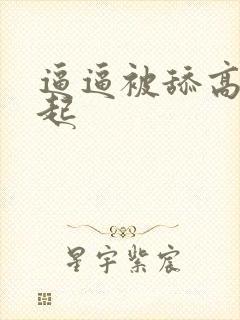 逼逼被舔高
起
星宇紫宸